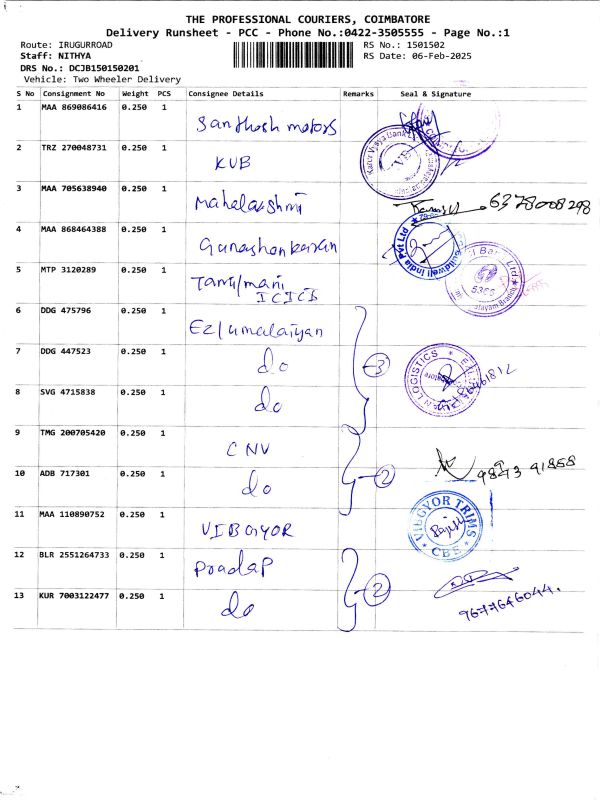 THE PROFESSIONAL COURIERS, COIMBATORE
Delivery Runsheet - PCC - Phone No.:0422-3505555 - Page No.:1
Route: IRUGURROAD RS No.: 1501502
Staff: NITHYA RS Date: 06-Feb-2025
DRS No.: DCJB150150201
Vehicle: Two Wheeler Delivery
S No Consignment No Weight PCS Consignee Details Remarks Seal & Signature
1 MAA 869086416 0.250 1 Santhosh motors
2 TRZ 270048731 0.250 1 KVB
Karur Vysya Bank
3 MAA 705638940 0.250 1 Mahalakshmi 6378008298
4 MAA 868464388 0.250 1 Gunashankaran
India Pvt Ltd
5 MTP 3120289 0.250 1 Tamilmani
ICICI
Bank Ltd
6 DDG 475796 0.250 1 Ez/umalaiyan
7 DDG 447523 0.250 1 do 3
LOGISTICS
8 SVG 4715838 0.250 1 do
9 TMG 200705420 0.250 1 CNV
10 ADB 717301 0.250 1 do 2 98943 91858
11 MAA 110890752 0.250 1 VIBGYOR
VIBGYOR TRIMS
CBE
12 BLR 2551264733 0.250 1 Pradap
13 KUR 7003122477 0.250 1 do 2 9677646044.